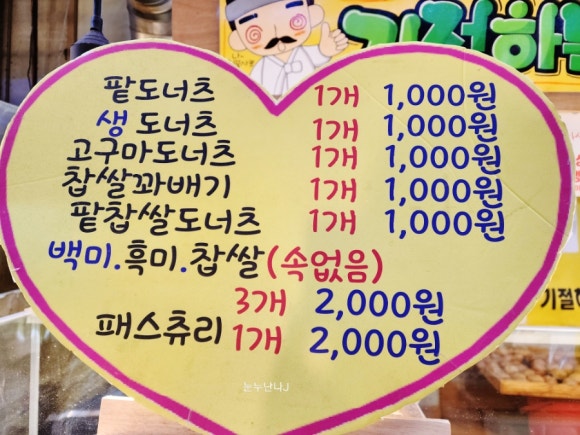 기절하
팥도너츠 1개 1,000원
생도너츠 1개 1,000원
고구마도너츠 1개 1,000원
찹쌀꽈배기 1개 1,000원
팥찹쌀도너츠 1개 1,000원
백미.흑미.찹쌀(속없음)
3개 2,000원
패스츄리 1개 2,000원
기절
는누난나J